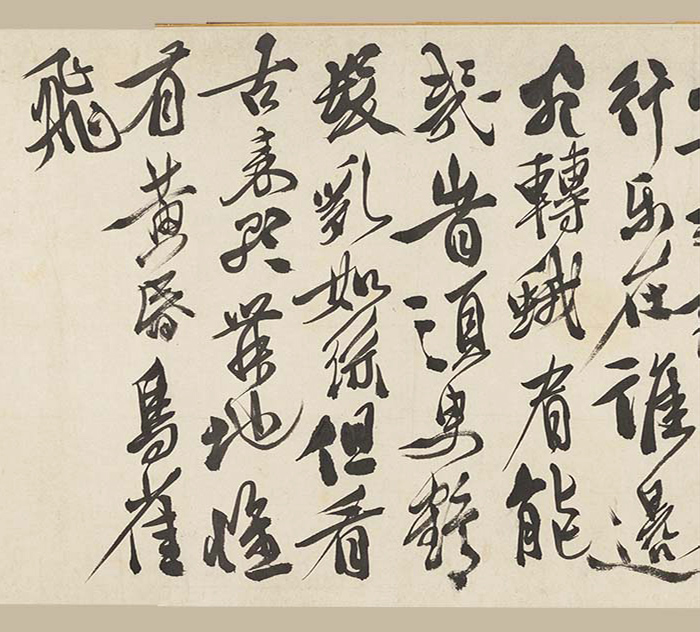 行樂在誰邊
宛轉蛾眉能
幾時須臾鶴
髮亂如絲但看
古來歌舞地惟
有黃昏鳥雀
飛